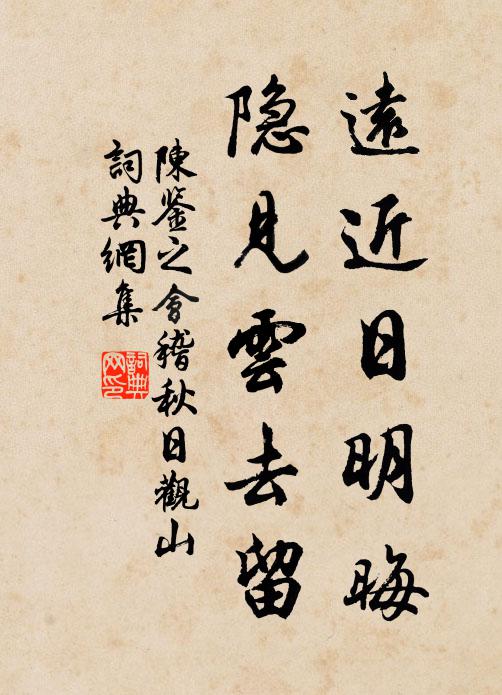 遠近日明晦
隐見雲去留
陳鉴之会稽秋日觀山
詞典網集
詞典网印